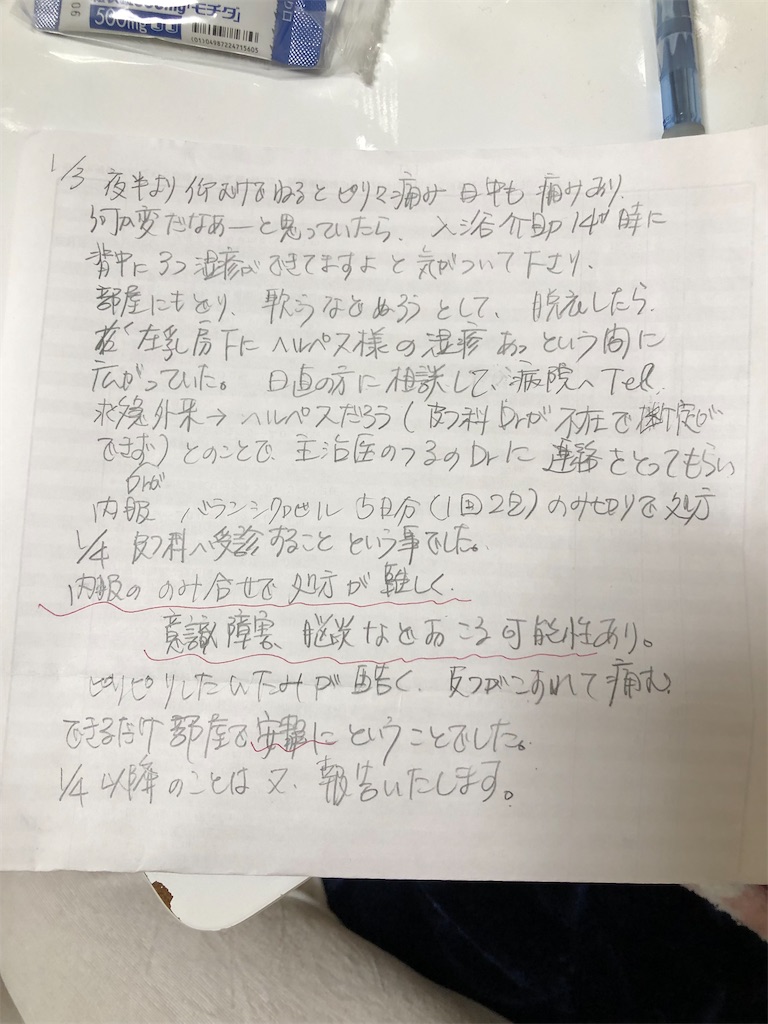 500mg「モチダ」
(01)04987224715605
1/3 夜半より仰むけでねるとピリピリ痛み 日中も痛みあり、
何か変だなあーと思っていたら、入浴介助 14時に
背中に3つ湿疹ができてますよ と気がついて下さり、
部屋にもどり、 なとぬろうとして、脱衣したら、
左乳房下に ヘルペス様の湿疹 あっという間に
広がっていた。 日直の方に相談して、病院へTel.
救急外来→ ヘルペスだろう(皮フ科Drが不在で断定が
できず)とのことで、主治医のつるのDrに連絡をとってもらい
Drが
内服 バラシクロビル 5日分(1回2包)のみ切りで処方
1/4 皮フ科へ受診すること という事でした。
内服の のみ合せで 処方が難しく、
意識障害、脳炎などおこる可能性あり。
ピリピリしたいたみが酷く、皮フがこすれて痛む、
できるだけ部屋で安静にということでした。
1/4以降のことは又、報告いたします。